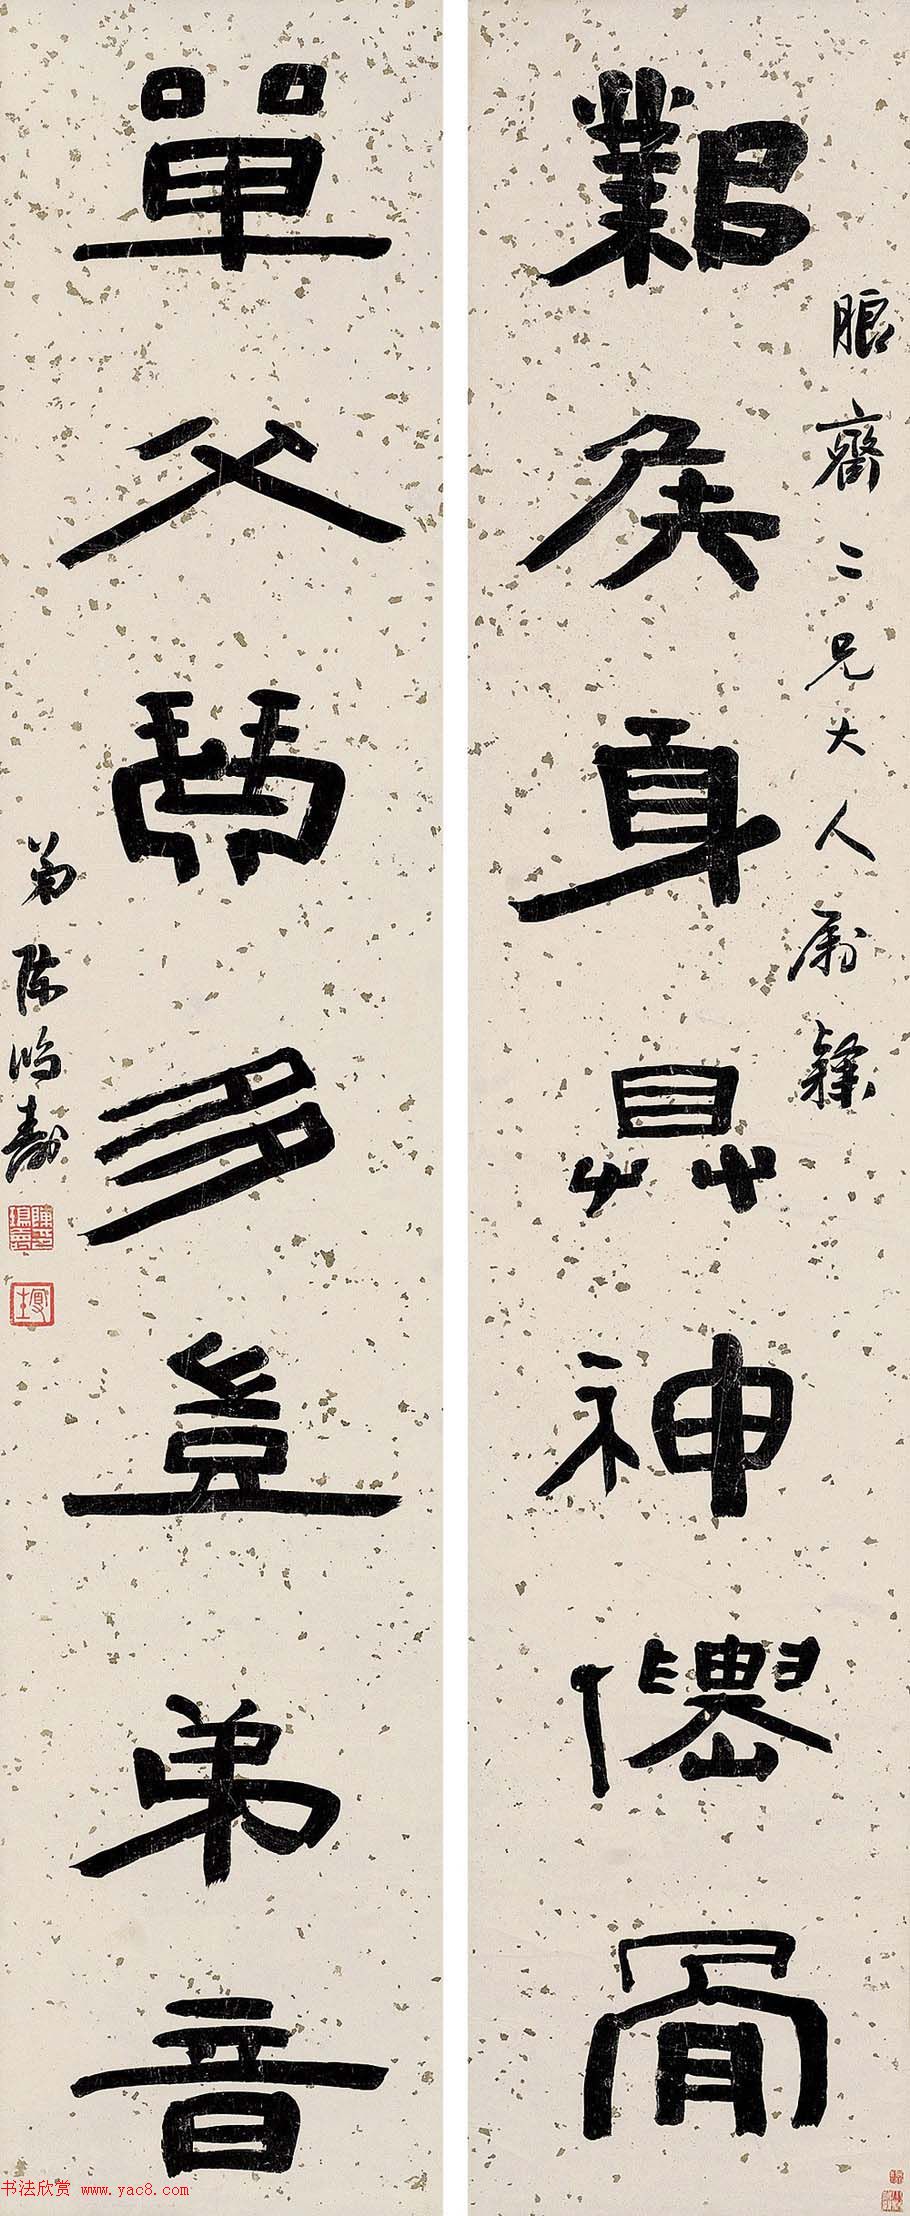 朖齋二兄大人屬隸
鄴侯身具神僊骨
單父琴多豈弟音
弟陳鴻壽
书法欣赏 www.yac8.com